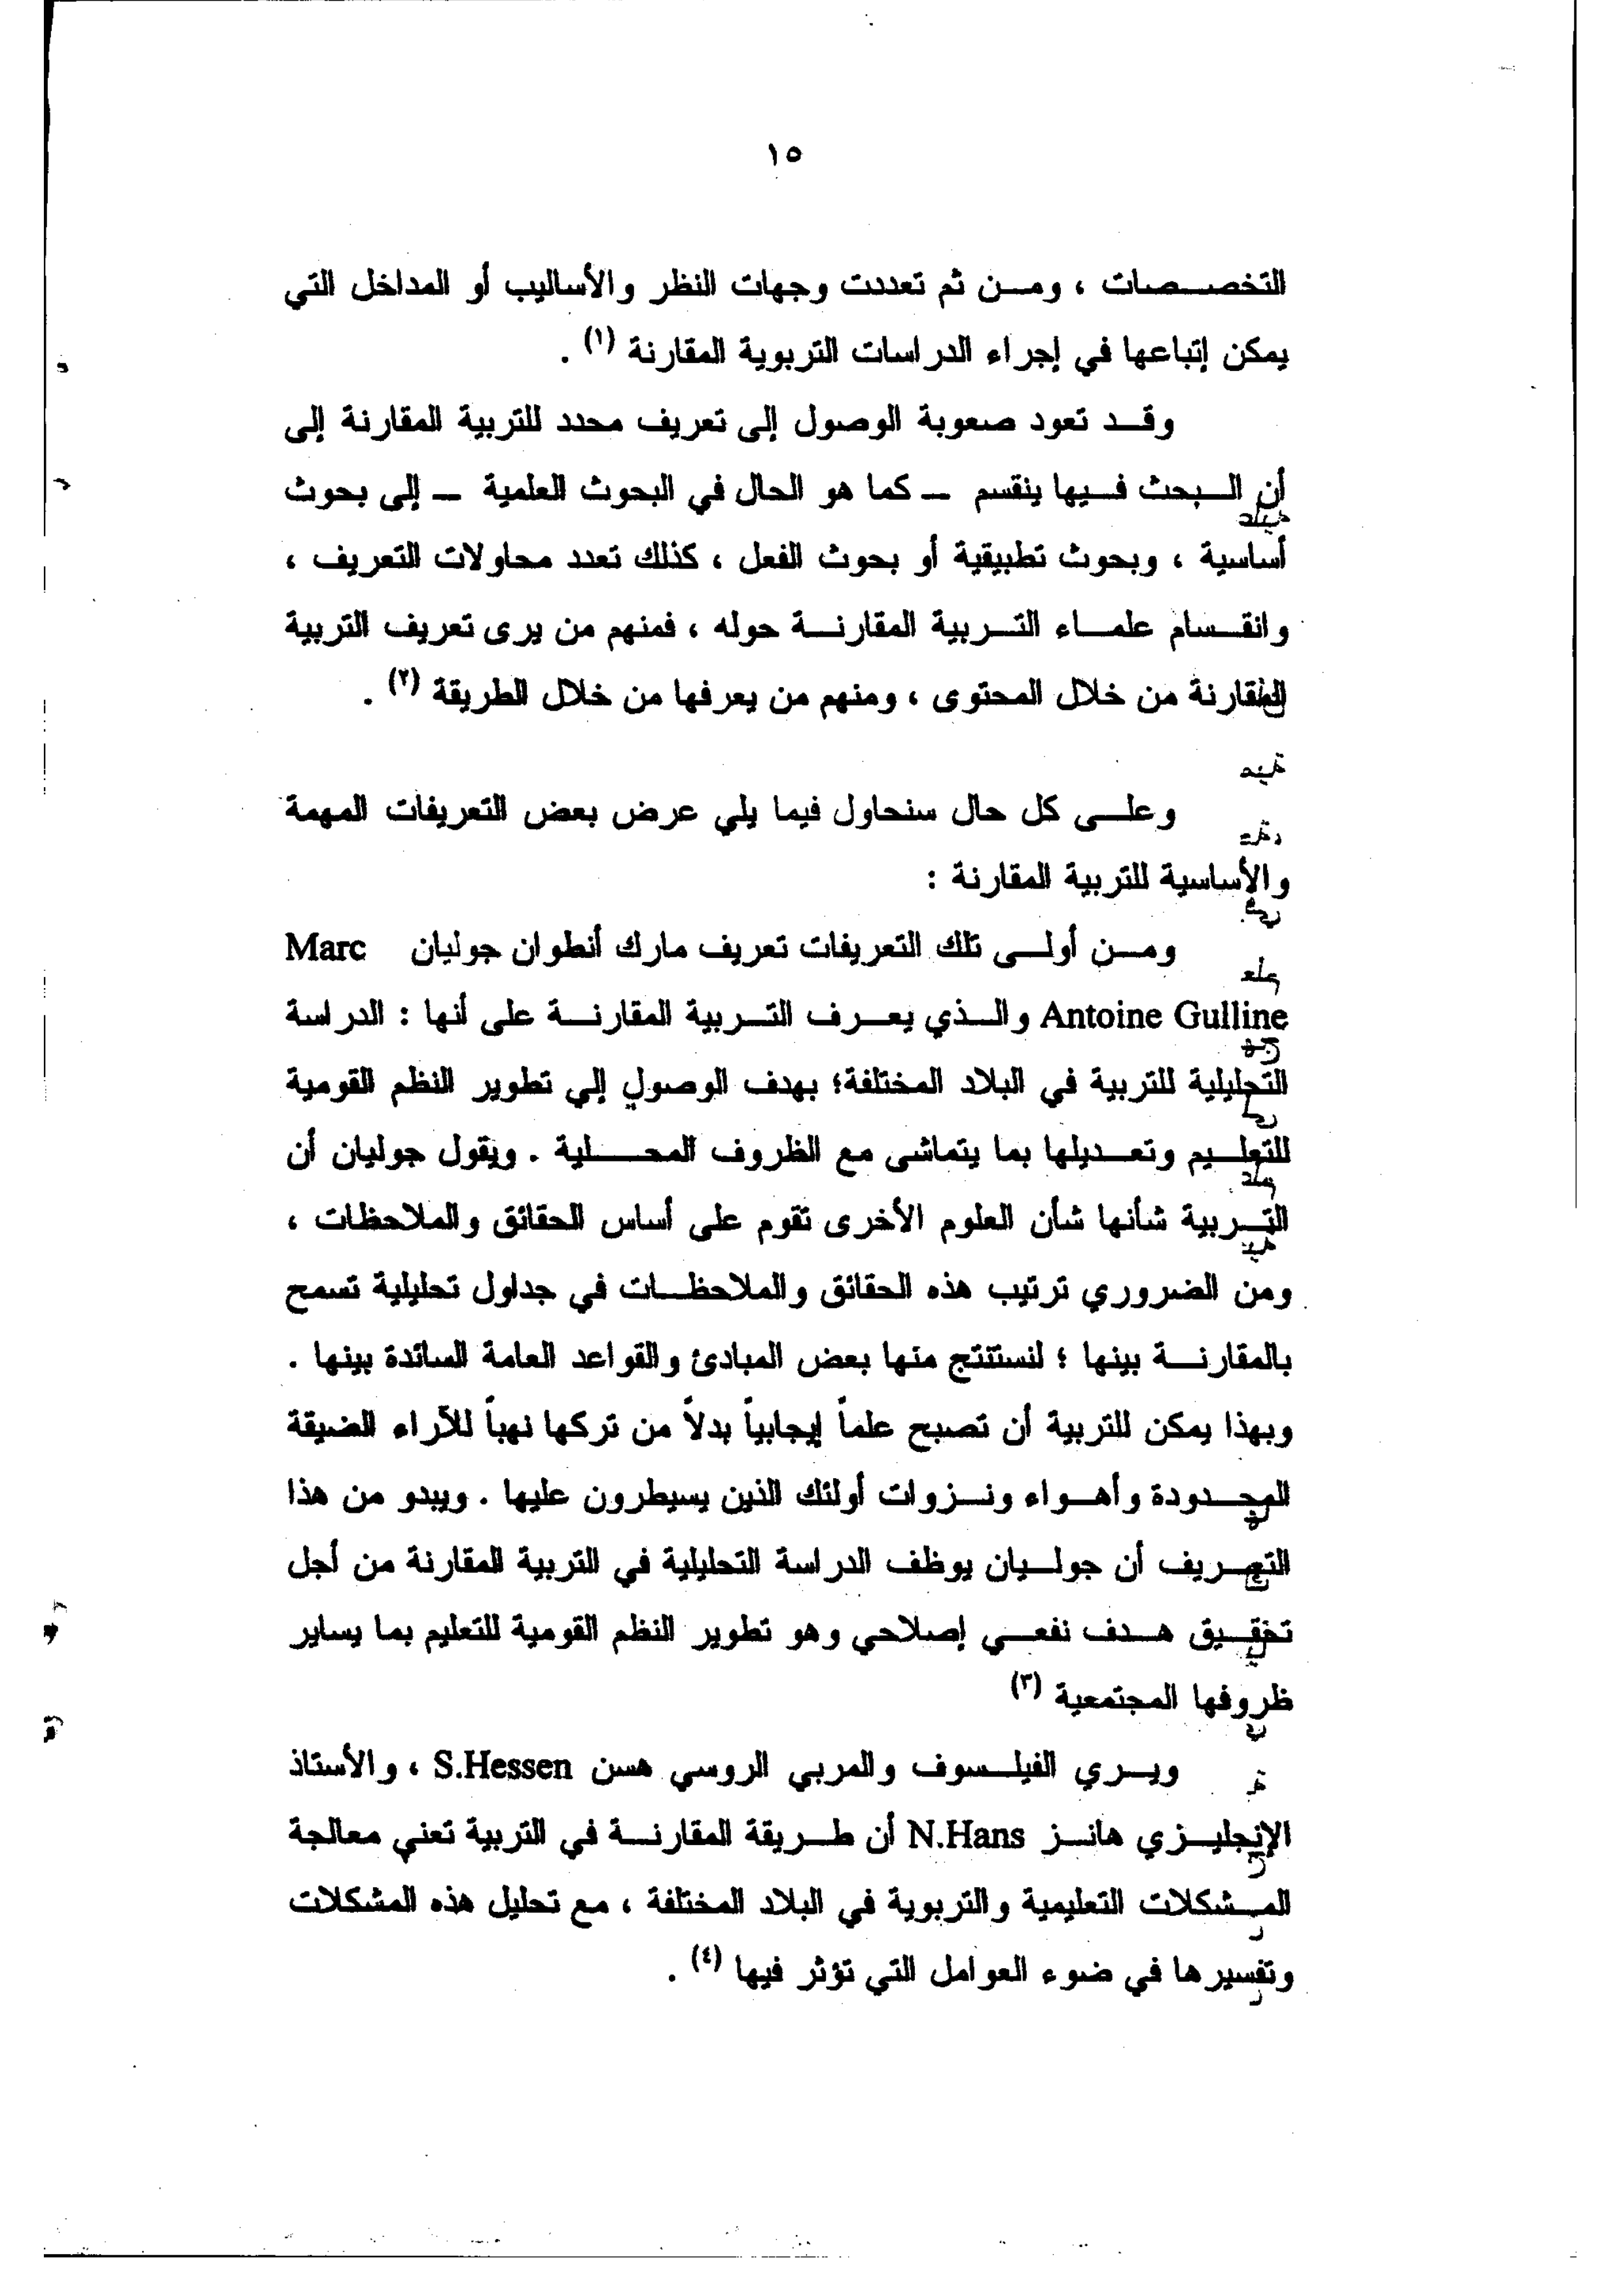 ١٥
التخصصات ، ومن ثم تعددت وجهات النظر والأساليب أو المداخل التي
يمكن إتباعها في إجراء الدراسات التربوية المقارنة (١) .
وقد تعود صعوبة الوصول إلى تعريف محدد للتربية المقارنة إلى
أن البحث فيها ينقسم – كما هو الحال في البحوث العلمية – إلى بحوث
أساسية ، وبحوث تطبيقية أو بحوث الفعل ، كذلك تعدد محاولات التعريف ،
وانقسام علماء التربية المقارنة حوله ، فمنهم من يرى تعريف التربية
المقارنة من خلال المحتوى ، ومنهم من يعرفها من خلال الطريقة (٢) .
وعلى كل حال سنحاول فيما يلي عرض بعض التعريفات المهمة
والأساسية للتربية المقارنة :
ومن أولى تلك التعريفات تعريف مارك أنطوان جوليان Marc
Antoine Gulline والذي يعرف التربية المقارنة على أنها : الدراسة
التحليلية للتربية في البلاد المختلفة؛ بهدف الوصول إلي تطوير النظم القومية
للتعليم وتعديلها بما يتماشى مع الظروف المحلية . ويقول جوليان أن
التربية شأنها شأن العلوم الأخرى تقوم على أساس الحقائق والملاحظات ،
ومن الضروري ترتيب هذه الحقائق والملاحظات في جداول تحليلية تسمح
بالمقارنة بينها ؛ لنستنتج منها بعض المبادئ والقواعد العامة السائدة بينها .
وبهذا يمكن للتربية أن تصبح علماً إيجابياً بدلاً من تركها نهباً للآراء الضيقة
المحدودة وأهواء ونزوات أولئك الذين يسيطرون عليها . ويبدو من هذا
التعريف أن جوليان يوظف الدراسة التحليلية في التربية المقارنة من أجل
تحقيق هدف نفعي إصلاحي وهو تطوير النظم القومية للتعليم بما يساير
ظروفها المجتمعية (٣)
ويري الفيلسوف والمربي الروسي هسن S.Hessen ، والأستاذ
الإنجليزي هانز N.Hans أن طريقة المقارنة في التربية تعني معالجة
المشكلات التعليمية والتربوية في البلاد المختلفة ، مع تحليل هذه المشكلات
وتفسيرها في ضوء العوامل التي تؤثر فيها (٤) .